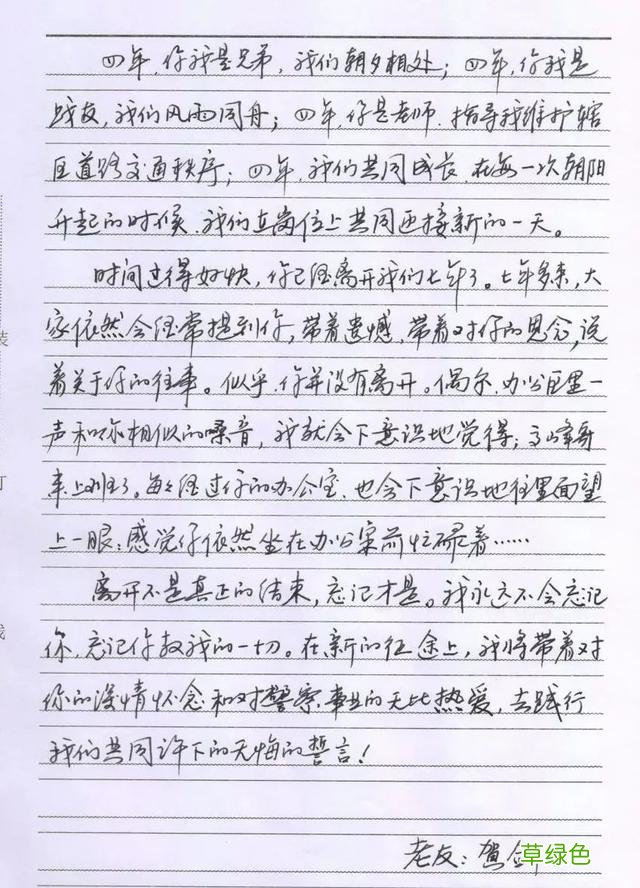 四年,你我是兄弟,我们朝夕相处;四年,你我是
战友,我们风雨同舟;四年,你是老师,指导我维护辖
区道路交通秩序;四年,我们共同成长,在每一次朝阳
升起的时候,我们在岗位上共同迎接新的一天。
时间过得好快,你已经离开我们七年了。七年多来,大
家依然会经常提到你,带着遗憾,带着对你的思念,说
着关于你的往事。似乎,你并没有离开。偶尔,办公区里一
声和你相似的嗓音,我就会下意识地觉得:高峰哥
来上班了。每每经过你的办公室,也会下意识地往里面望
上一眼:感觉你依然坐在办公案前忙碌着……
离开不是真正的结束,忘记才是。我永远不会忘记
你,忘记你教我的一切。在新的征途上,我将带着对
你的深情怀念和对警察事业的无比热爱,去践行
我们共同许下的无悔的誓言!
老友:贺剑
草绿色
装
订
线